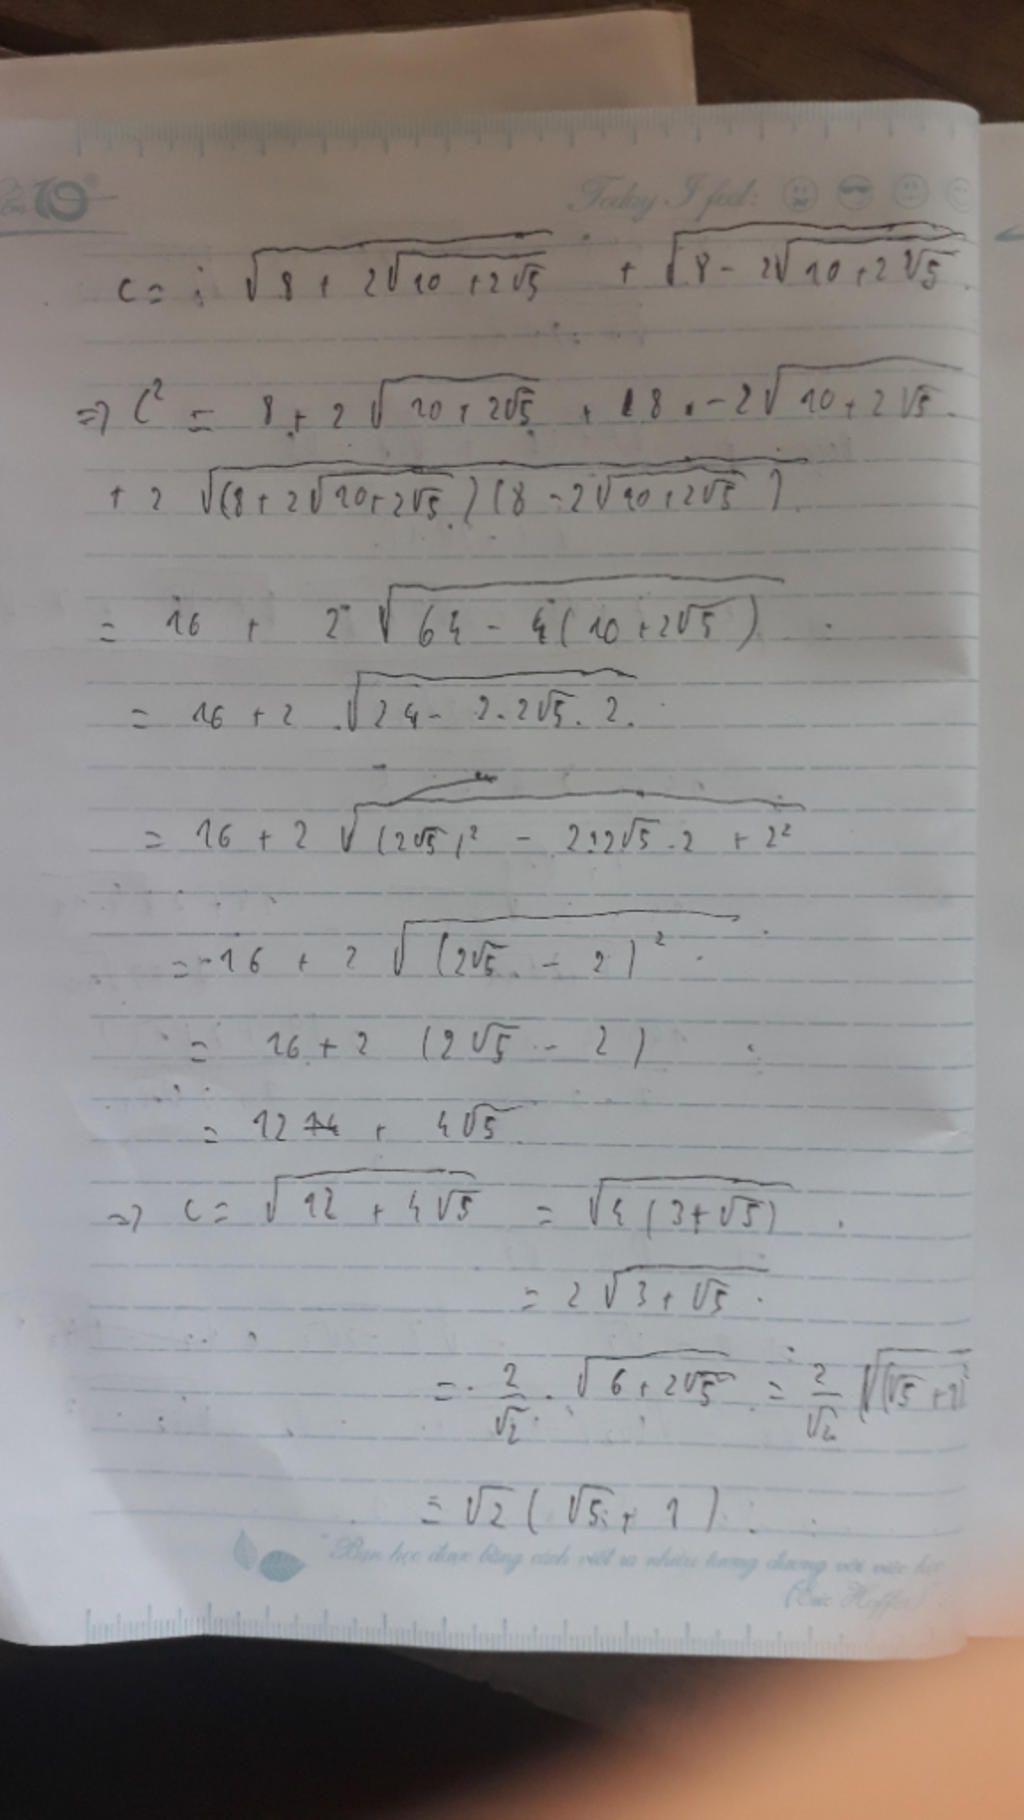 10
Today I feel:
C = √(8 + 2√(10 + 2√5)) + √(8 - 2√(10 + 2√5))
=> C² = 8 + 2√(10 + 2√5) + 8 - 2√(10 + 2√5)
+ 2 √((8 + 2√(10 + 2√5)) (8 - 2√(10 + 2√5)))
= 16 + 2 √(64 - 4(10 + 2√5))
= 16 + 2 . √(24 - 2.2√5.2)
= 16 + 2 √((2√5)² - 2.2√5.2 + 2²)
= 16 + 2 √((2√5 - 2)²)
= 16 + 2 (2√5 - 2)
= 12 + 4√5
=> C = √(12 + 4√5) = √(4(3 + √5))
= 2√(3 + √5)
= 2/√2 . √(6 + 2√5) = 2/√2 √((√5 + 1)²)
= √2 (√5 + 1)
Bạn học được bằng cách viết ra nhiều tương đương với việc
(Eric Hoffer)